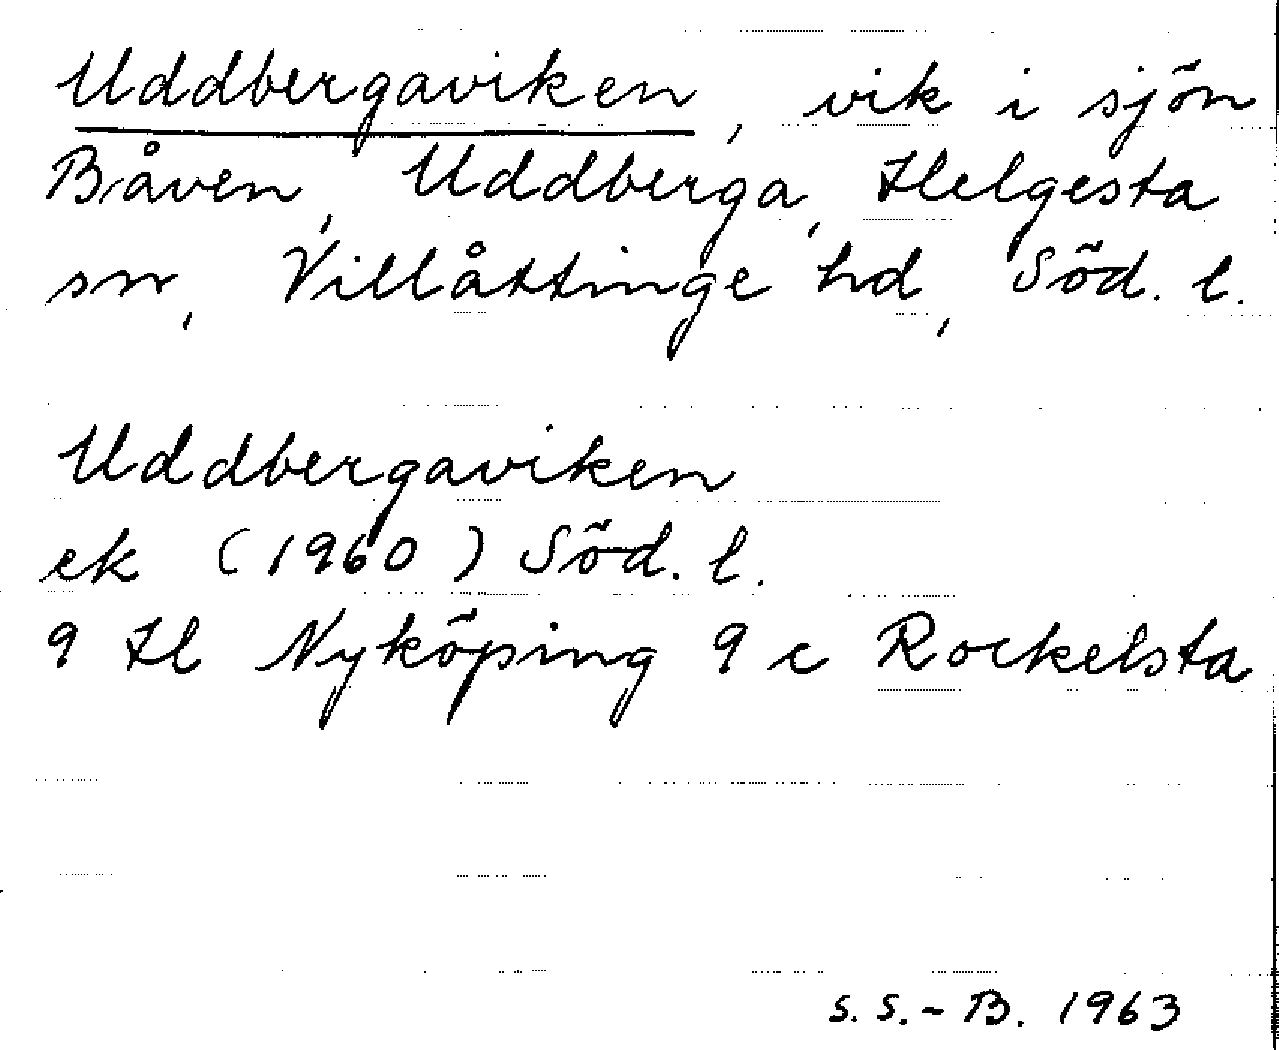 Uddbergaviken, vik i sjön
Båven, Uddberga, Helgesta
sn, Villåttinge hd, Söd. l.
Uddbergaviken
ek (1960) Söd. l.
9 H Nyköping 9 c Rockelsta
S. S.-B. 1963